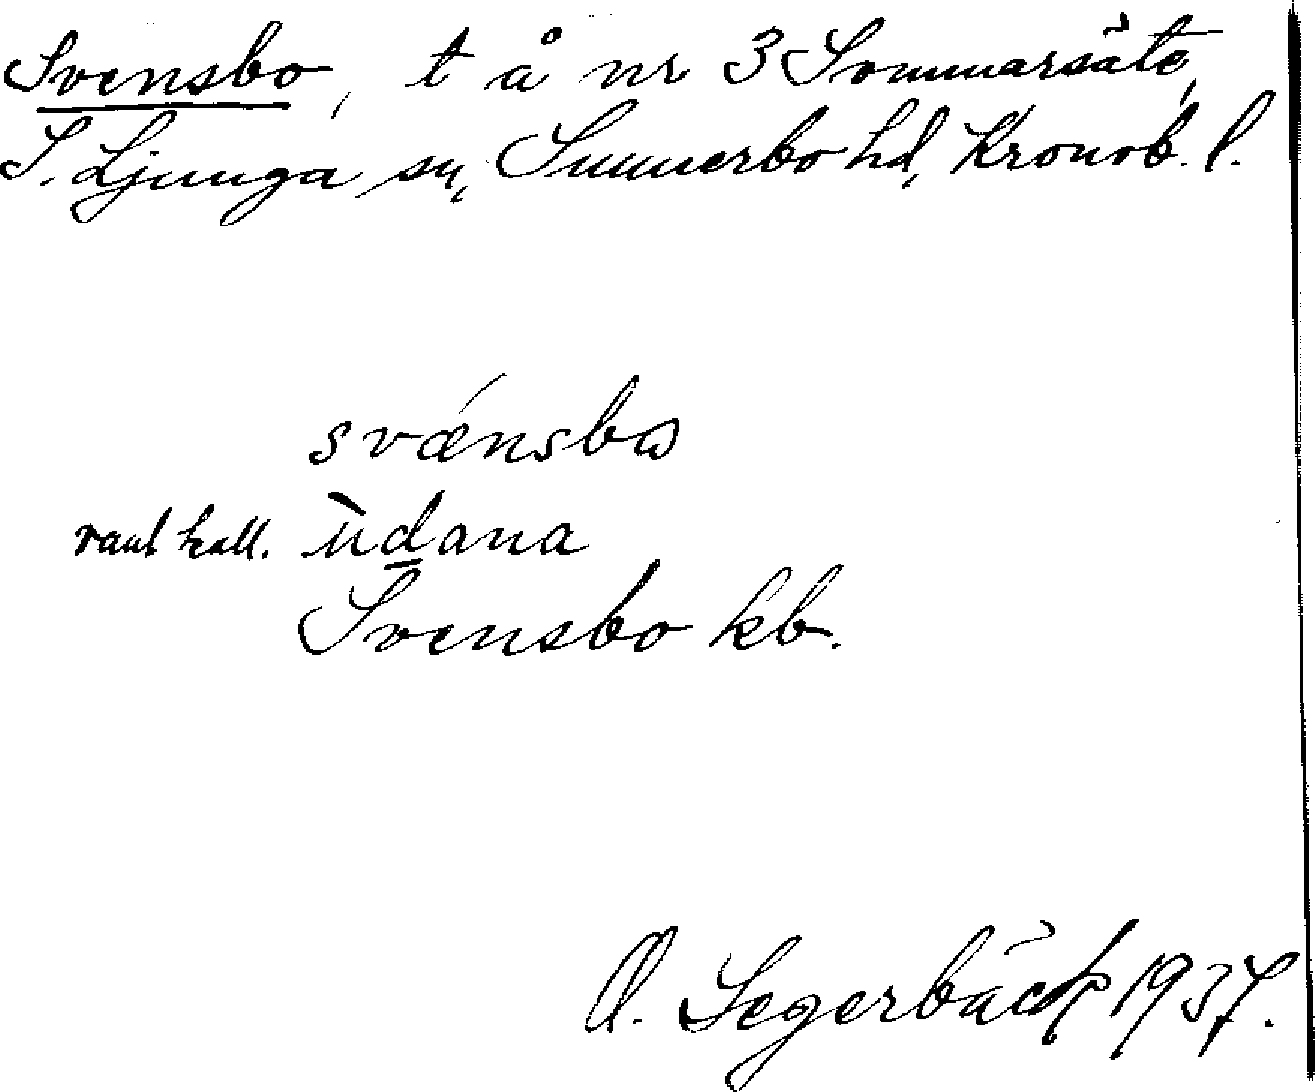 Svensbo, t å nr 3 Sommarsäte,
S. Ljunga sn, Sunnerbo hd, Kronob. l.
svǽnsbω
vanl kall. ùdana
Svensbo kb.
O. Segerbäck 1937.